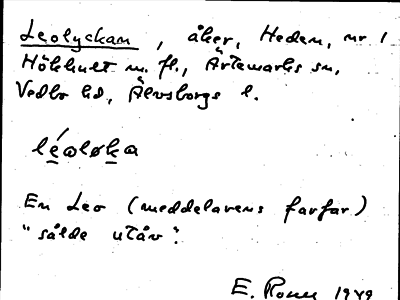 Leolyckan, åker, Heden, nr 1
Hökhult m. fl., Ärtemarks sn,
Vedbo hd, Älvsborgs l.
léoloka
En Leo (meddelarens farfar)
"sålde utåv".
E. 1949